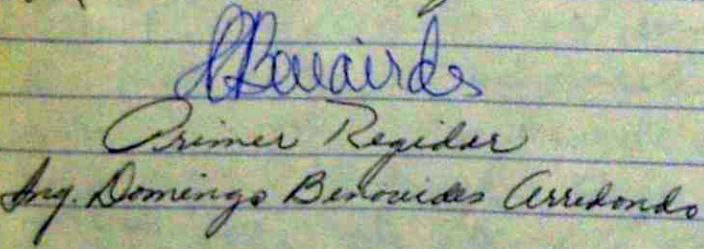 Benavides
Primer Regidor
Ing. Domingo Benavides Arredondo